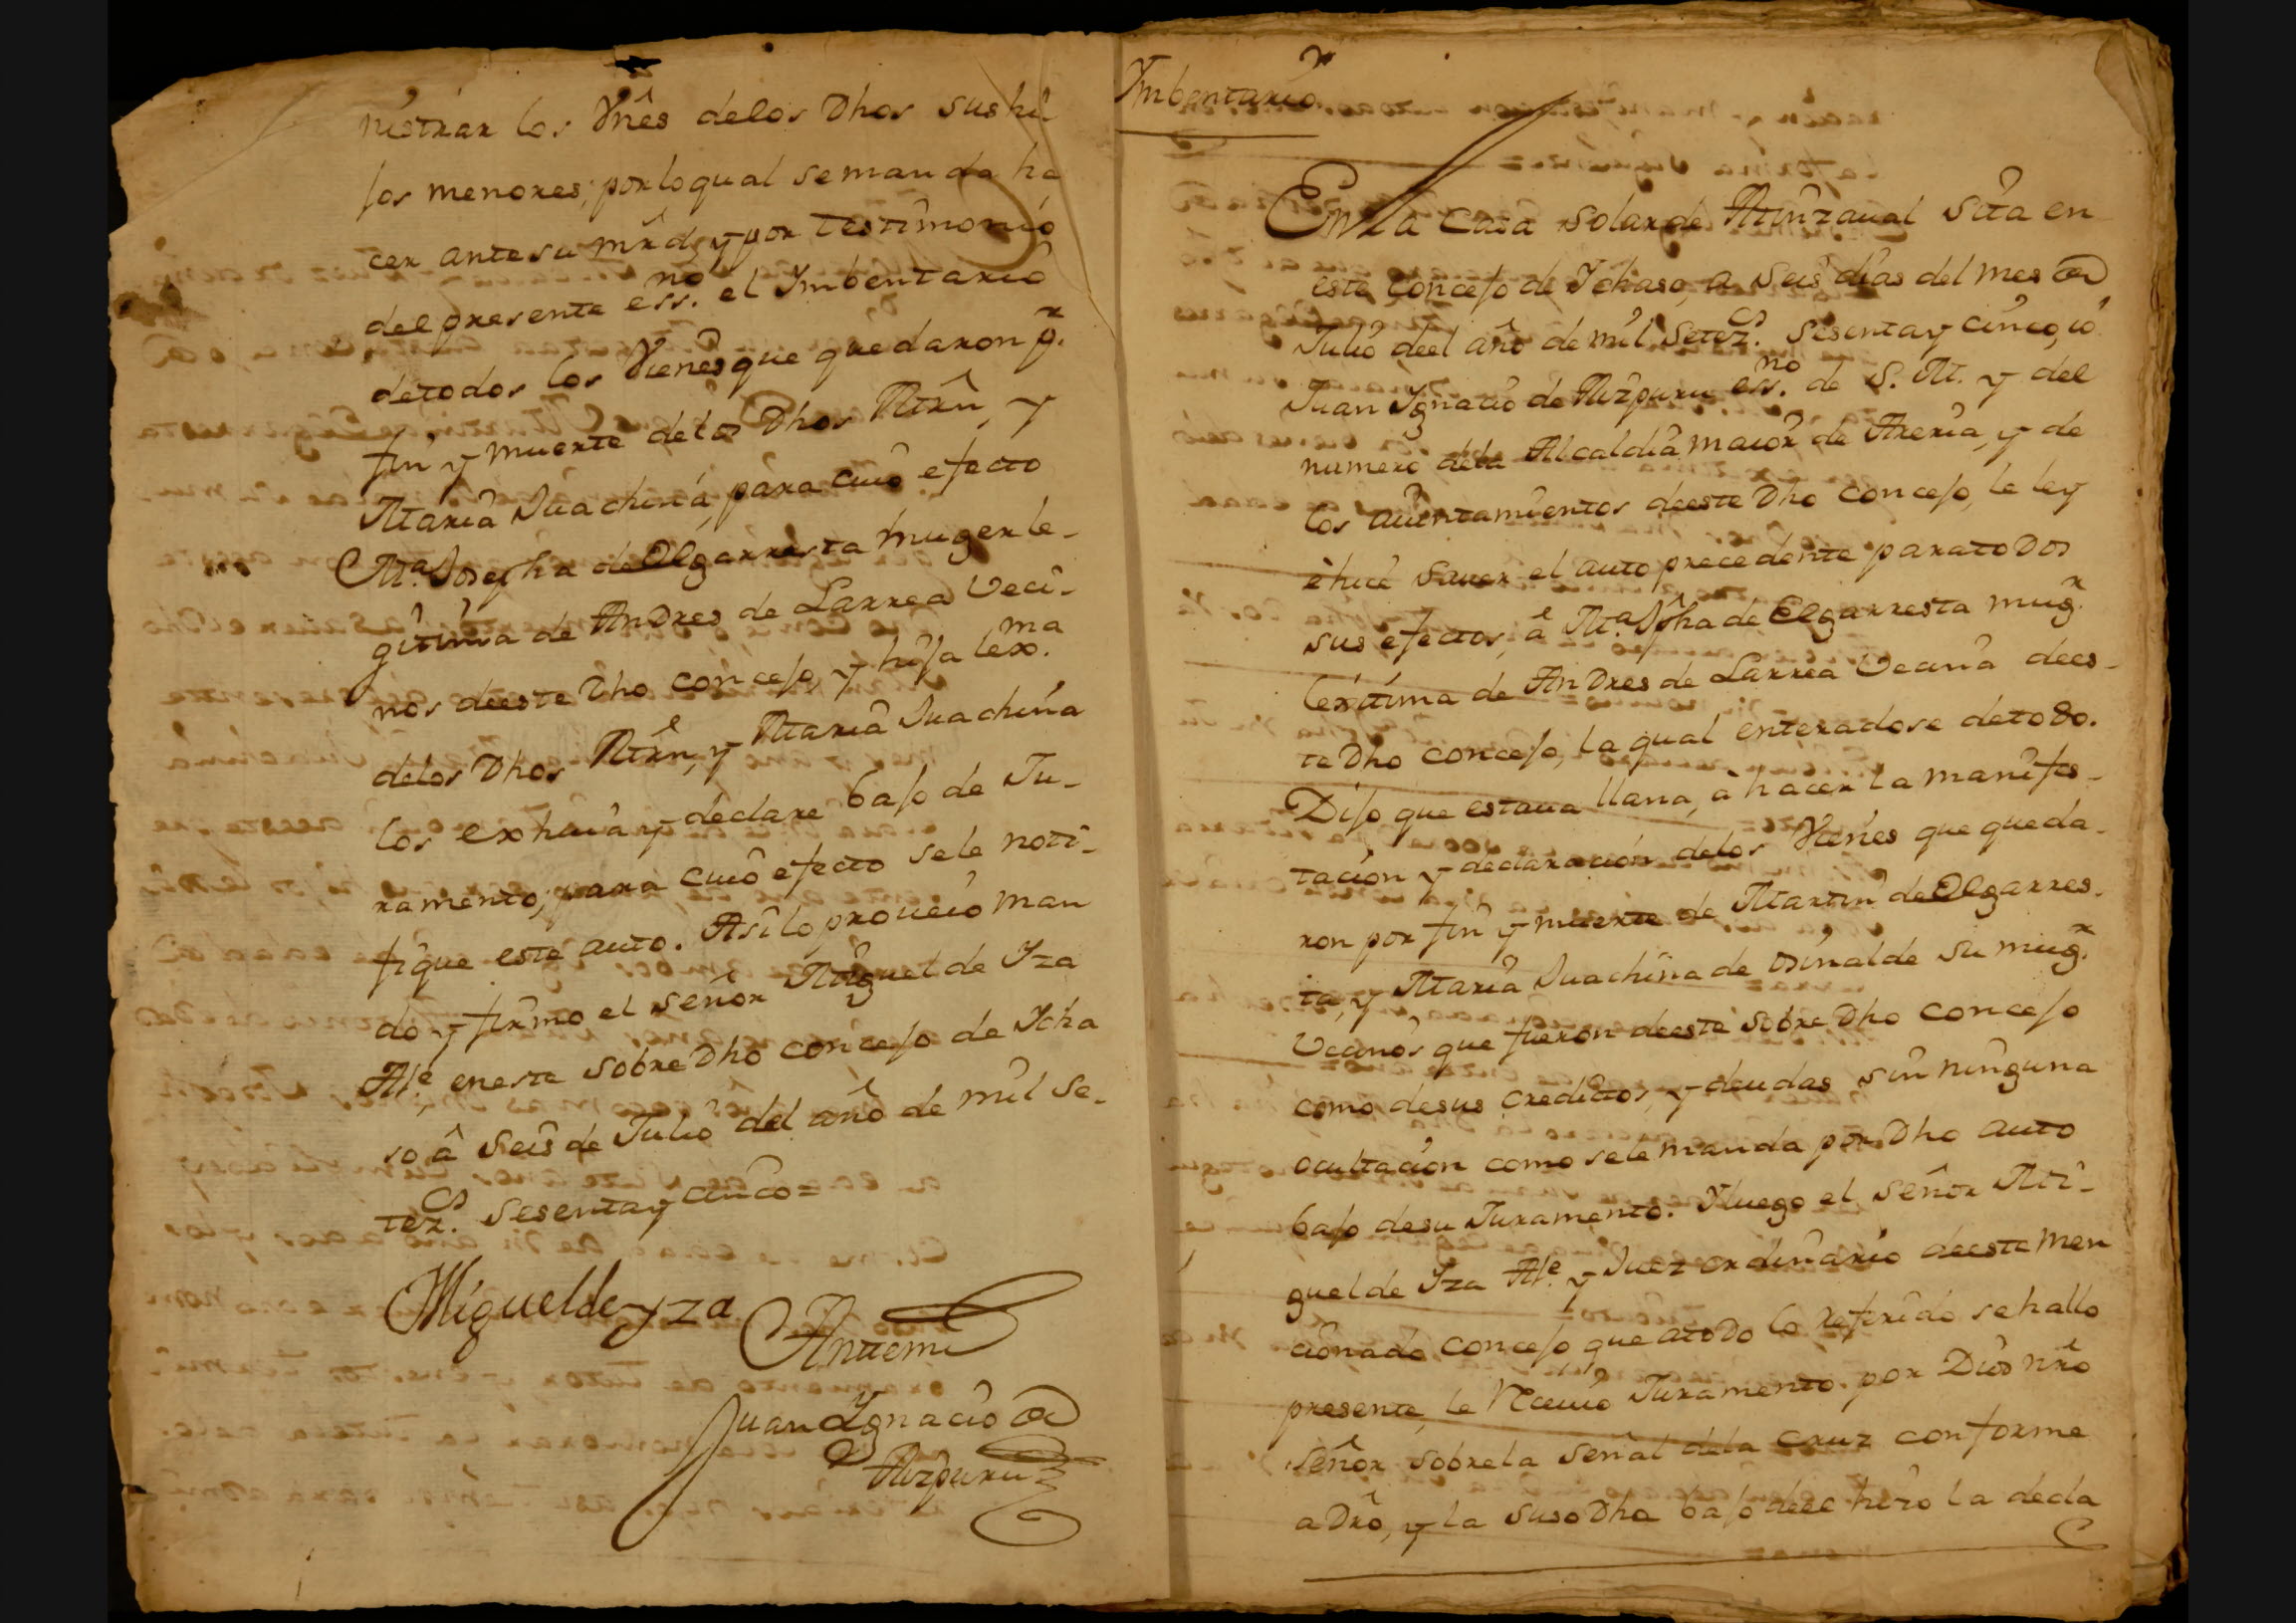 nistrar los Vnês delos Dhos sus hi
jos menores; por lo qual se manda ha
cer ante su mrd, y por testimonio
del presente ess.no el Ymbentario
de todos los Vienes que quedaron p.r
fin y muerte de los Dhos Mrñ, y
Maria Juachina, para cuio efecto
M.a Josepha de Elgarresta muger le-
gitima de Andres de Larrea Veci-
nos de este Dho concejo, y hija lex.ma
delos Dhos Mrñ, y Maria Juachina
los exhiva y declare bajo de Ju-
ramento; para cuio efecto se le noti-
fique este auto. Asi lo proveio man
do y firmo el señor Miguel de Yza
Al.e en este sobre Dho concejo de Ycha
so â seis de Julio del año de mil se-
tez.os sesenta y cinco=
Miguel de yza
Ante mi
Juan Ygnacio de
Aizpuru
Ymbentario
En la Casa solar de Minzaual sita en
este concejo de Ychaso, a seis dias del mes de
Julio deel año de mil setez.os sesenta y cinco, io
Juan Ygnacio de Aizpuru ess.no de S. M. y del
numero dela Alcaldia maior de Areria, y de
los aiuntamientos de este Dho concejo, le ley
è hice saver el auto precedente para todos
sus efectos, â M.a Jpha de Elgarresta mug.r
lexitima de Andres de Larrea Vecina de es-
te Dho concejo, la qual enteradose de todo.
Dijo que estaua llana, a hacer la manifes-
tacion y declaracion delos Vienes que queda-
ron por fin y muerte de Martin de Elgarres-
ta, y Maria Juachina de Osinalde su mug.r
Vecinos que fueron de este sobre Dho concejo
como de sus creditos, y deudas sin ninguna
ocultacion como se le manda por Dho auto
bajo de su Juramento. Y luego el señor Mi-
guel de Yza Al.e y Juez ordinario de este men
cionado concejo que a todo lo referido se hallo
presente, le Reciuio Juramento por Dios nrô
señor sobre la señal de la cruz conforme
a Drô, y la suso Dha bajo deel hizo la decla